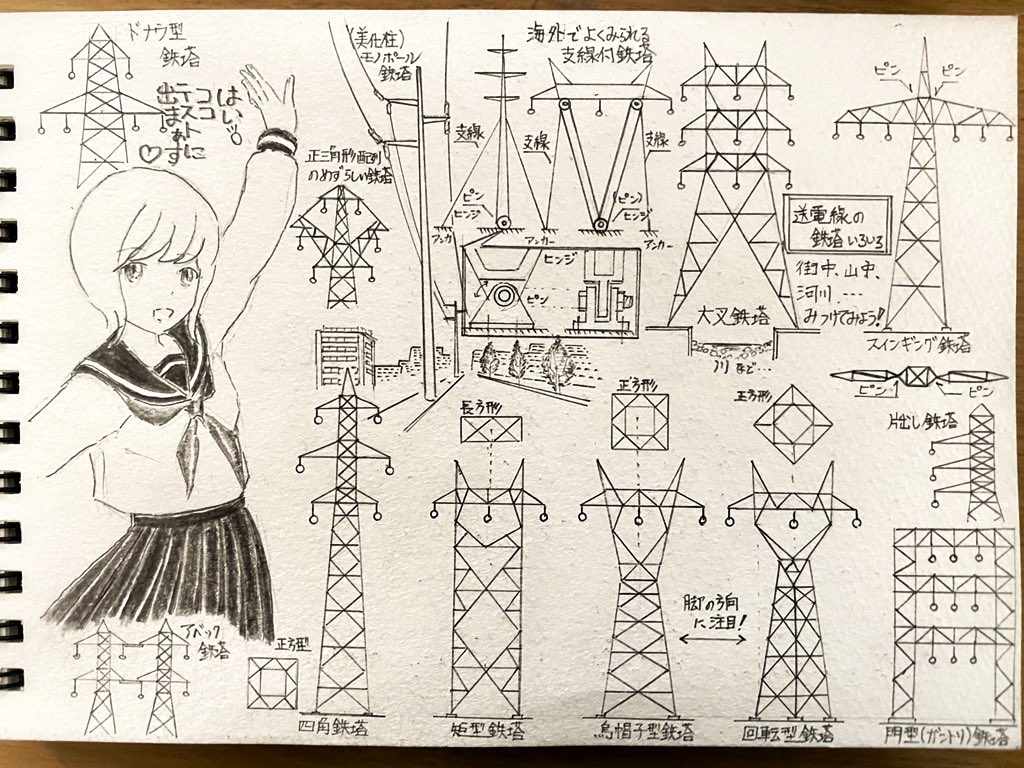 ドナウ型
鉄塔
はいッ。
ココ
テストに
出まぁす♡
(美化柱)
モノポール
鉄塔
海外でよくみられる
支線付鉄塔
支線
支線
支線
ピン
ヒンジ
(ピン)
ヒンジ
アンカー
アンカー
アンカー
ヒンジ
ピン
正三角形配列
のめずらしい鉄塔
大叉鉄塔
川など…
ピン
ピン
送電線の
鉄塔いろいろ
街中、山中、
河川、…
みつけてみよう!
スインギング鉄塔
ピン
ピン
片出し鉄塔
長方形
正方形
正方形
アベック
鉄塔
正方型
四角鉄塔
矩型鉄塔
烏帽子型鉄塔
脚の方向
に注目!
回転型鉄塔
門型(ガントリ)鉄塔